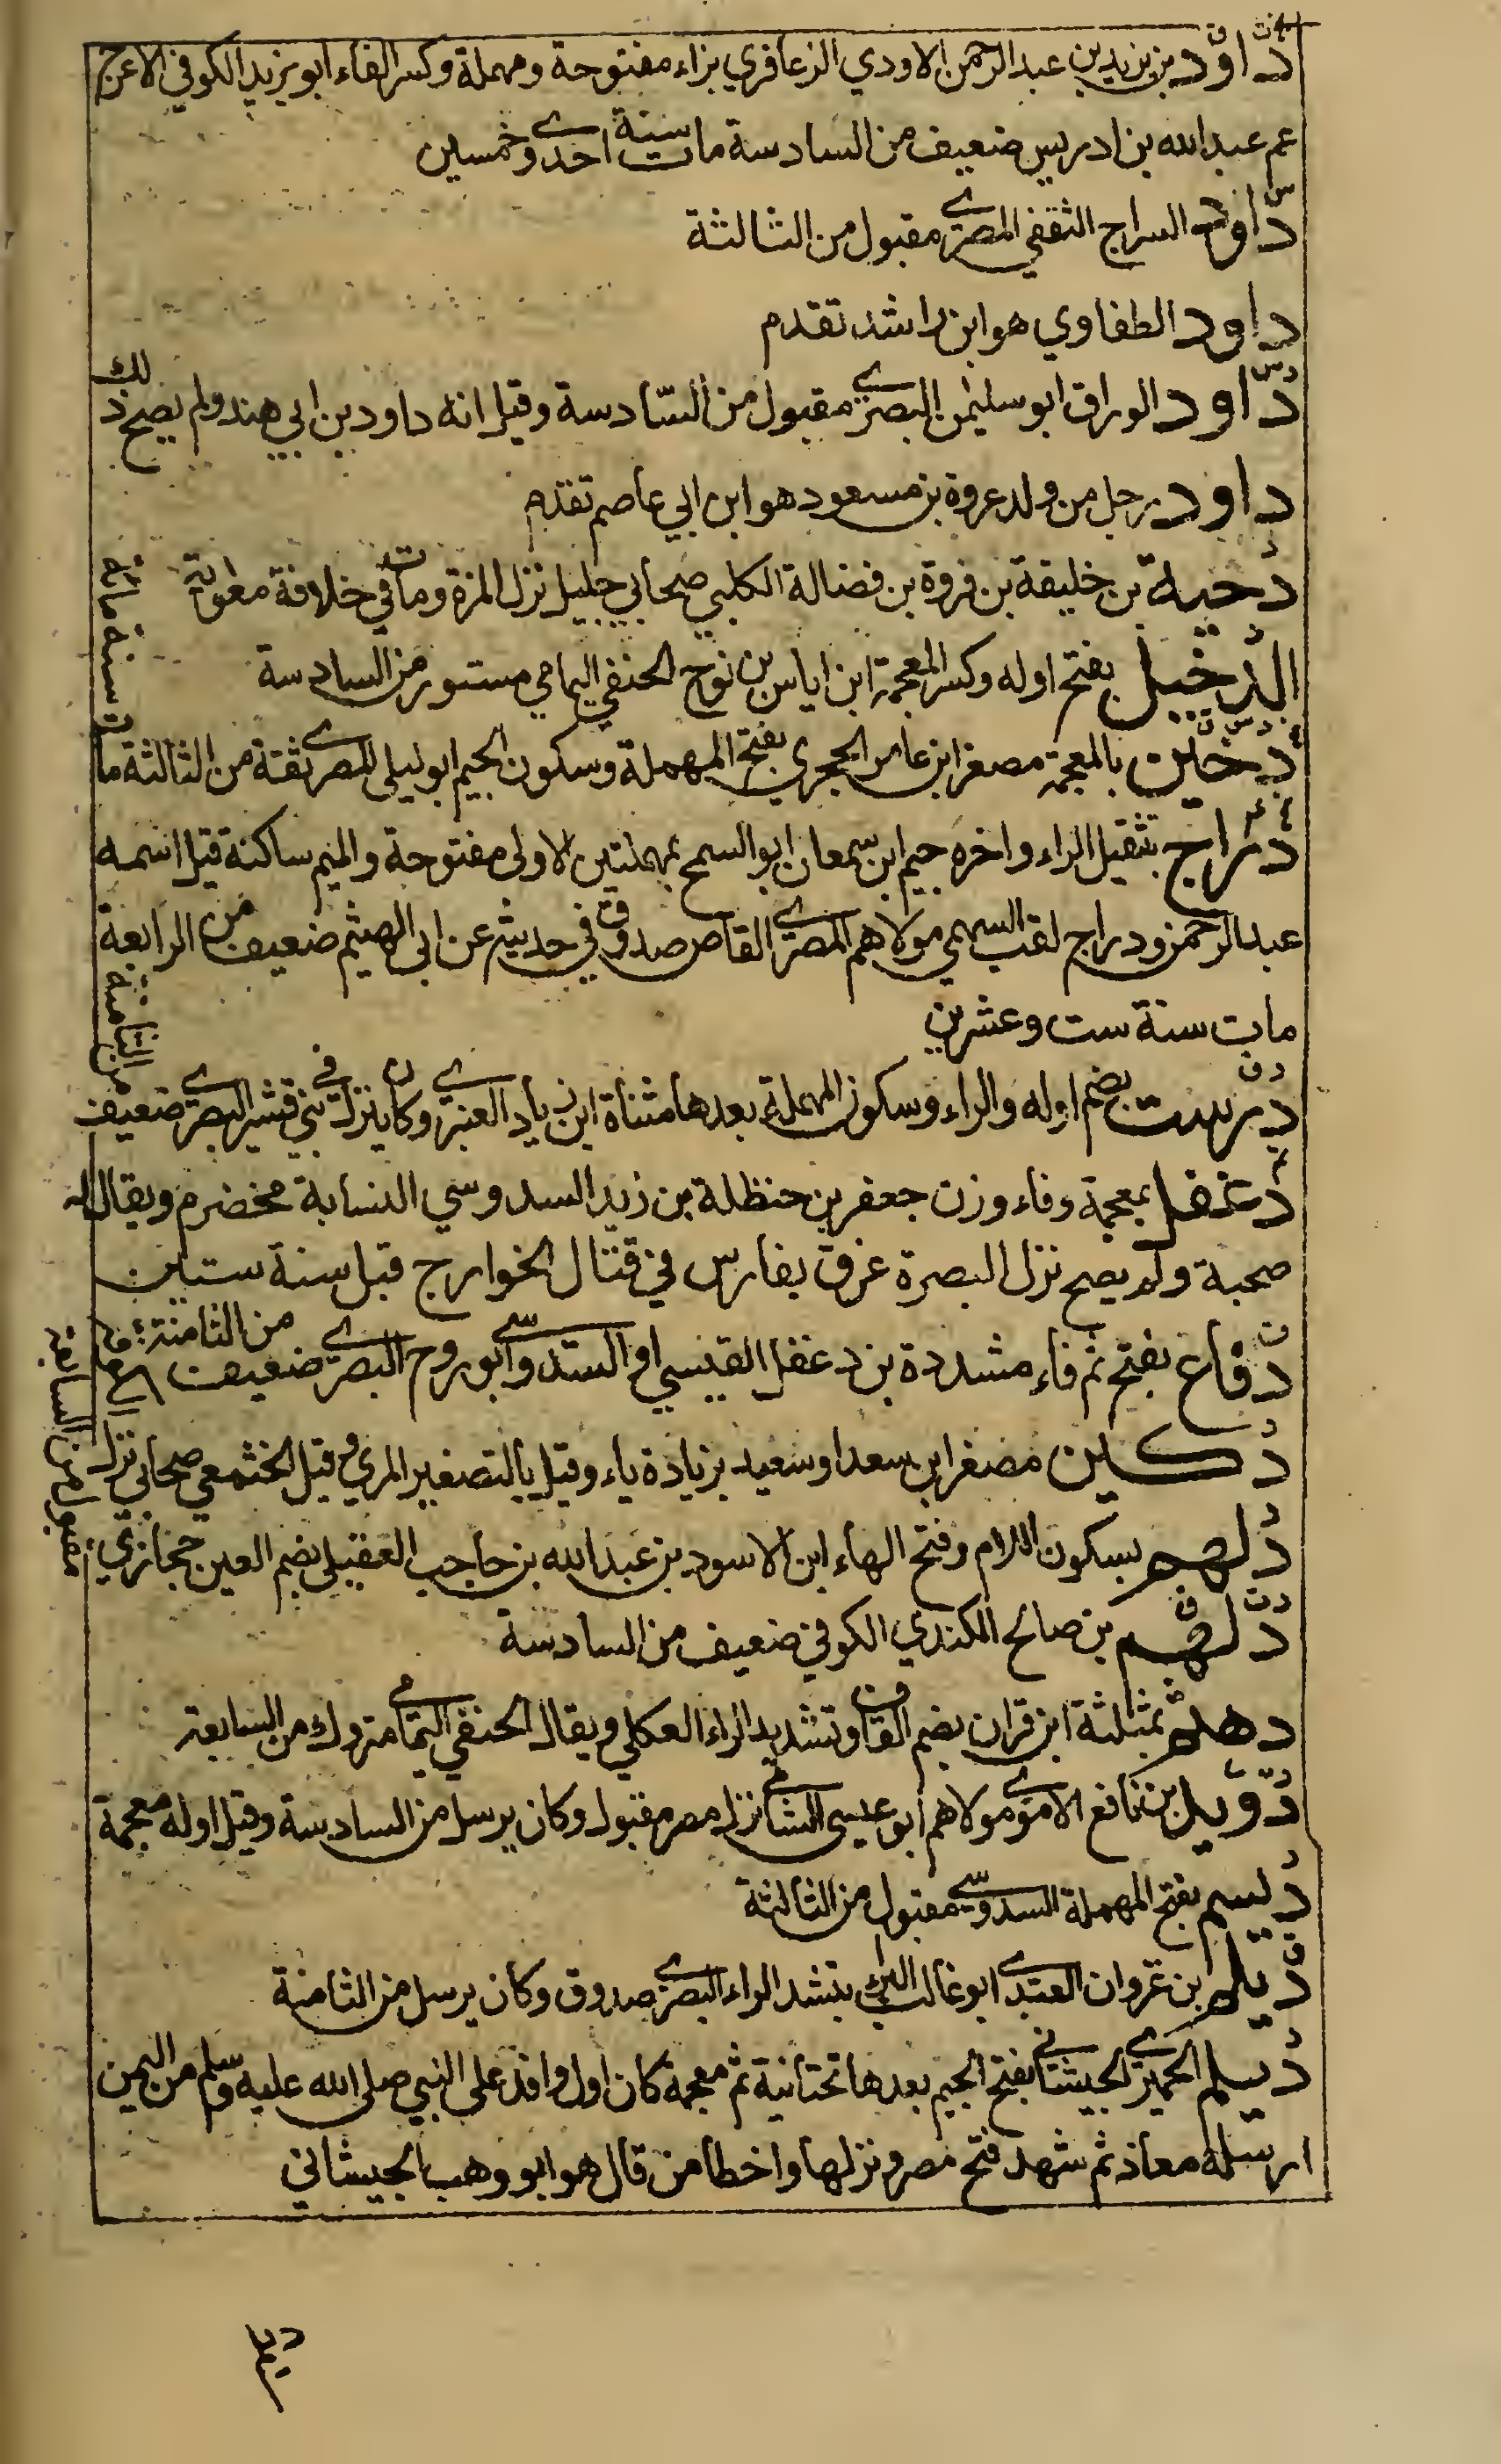 داود بن يزيد بن عبد الرحمن الاودي الزعافري بزاء مفتوحة ومهملة وكسر الفاء ابو يزيد الكوفي الاعرج
عم عبد الله بن ادريس ضعيف من السادسة مات سنة احدى وخمسين
داود السراج الثقفي المصري مقبول من الثالثة
داود الطفاوي هو ابن راشد تقدم
داود الوراق ابو سليمن البصري مقبول من السادسة وقيل انه داود بن ابي هند ولم يصح ذلك
داود رجل من ولد عروة بن مسعود هو ابن ابي عاصم تقدم
دحية بن خليفة بن فروة بن فضالة الكلبي صحابي جليل نزل المزة ومات في خلافة معوية
الدخيل بفتح اوله وكسر المعجمة ابن اياس بن نوح الحنفي اليمامي مستور من السادسة
دخين بالمعجمة مصغر ابن عامر الحجري بفتح المهملة وسكون الجيم ابو ليلى المصري ثقة من الثالثة مات سنة مائة
دراج بتثقيل الراء واخره جيم ابن سمعان ابو السمح بمهملتين الاولى مفتوحة والميم ساكنة قيل اسمه
عبد الرحمن ودراج لقب السهمي مولاهم المصري القاص صدوق في حديثه عن ابي الهيثم ضعيف من الرابعة
مات سنة ست وعشرين
درست بضم اوله والراء وسكون المهملة بعدها مثناة ابن زياد العنبري وكان ينزل في بني قشير البصري ضعيف من الثامنة
دغفل بمعجمة وفاء وزن جعفر بن حنظلة بن زيد السدوسي النسابة مخضرم ويقال له
صحبة ولم يصح نزل البصرة غرق بفارس في قتال الخوارج قبل سنة ستين
دفاع بفتح ثم فاء مشددة بن دغفل القيسي او السدوسي ابو روح البصري ضعيف من الثامنة
دكين مصغر ابن سعد او سعيد بزيادة ياء وقيل بالتصغير المري وقيل الخثعمي صحابي نزل الكوفة
دلهم بسكون اللام وفتح الهاء ابن الاسود بن عبد الله بن حاجب العقيلي بضم العين حجازي مقبول من السابعة
دلهم بن صالح الكندي الكوفي ضعيف من السادسة
دهثم بمثلثة ابن قران بضم القاف وتشديد الراء العكلي ويقال الحنفي اليمامي متروك من السابعة
دويد بن نافع الاموي مولاهم ابو عيسى الشامي نزل مصر مقبول وكان يرسل من السادسة وقيل اوله معجمة
ديسم بفتح المهملة السدوسي مقبول من الثالثة
ديلم بن غزوان العبدي ابو غالب البراء بتشد الراء البصري صدوق وكان يرسل من الثامنة
ديلم الحميري الجيشاني بفتح الجيم بعدها تحتانية ثم معجمة كان اول وافد على النبي صلى الله عليه وسلم من اليمن
ارسله معاذ ثم شهد فتح مصر ونزلها واخطأ من قال هو ابو وهب الجيشاني